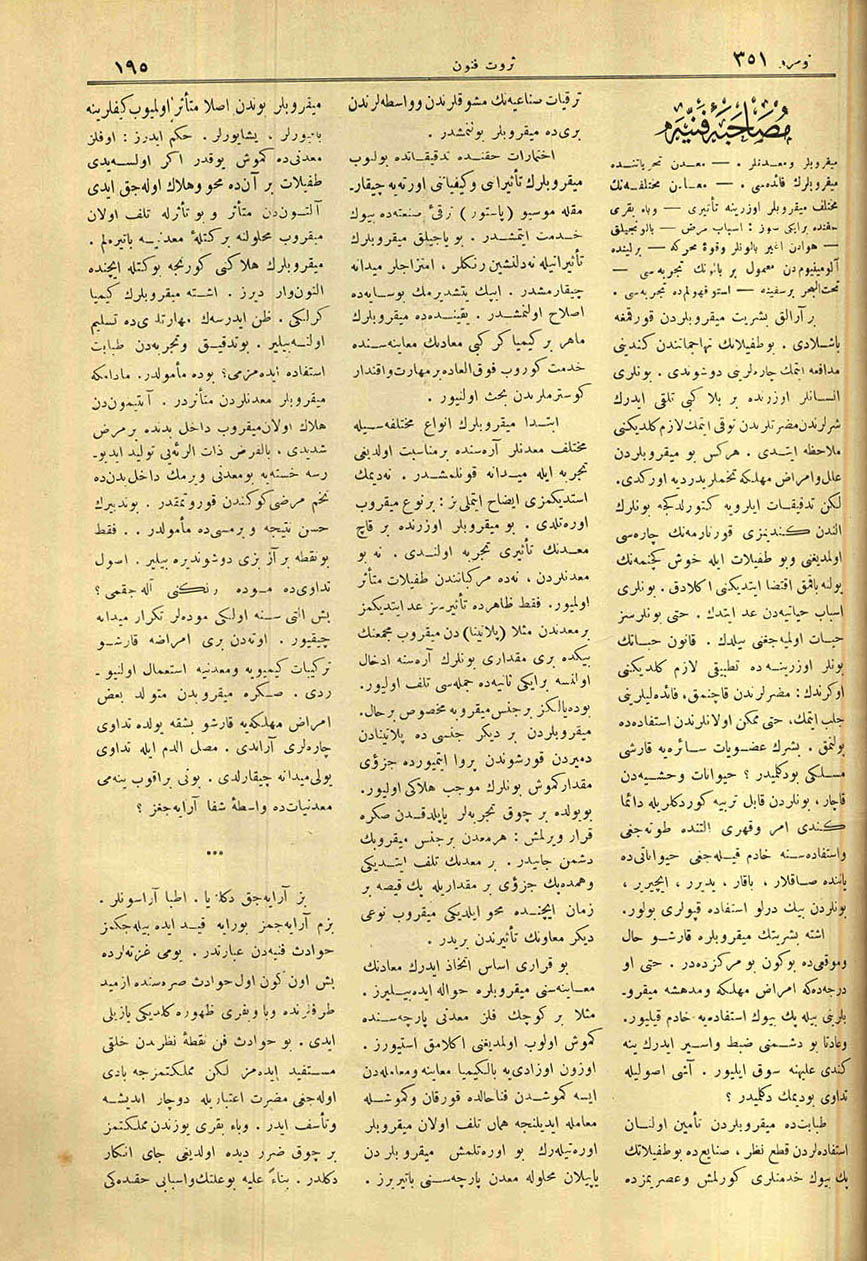 نومرو ٣٥١
ثروت فنون
١٩٥
مصاحبۀ فنیه
میقروبلر ومعدنلر . — معدن تحریاتنده
میقروبلرك فائده‌سی . — معادن مختلفه‌نك
مختلف میقروبلر اوزرینه تأثیری — وباء بقری
حقنده برایكی سوز : اسباب مرض — بالونجیلق
— هوادن اغیر بالونلر وقوۀ محركه — برلینده
آلومینیومدن معمول بر بالونك تجربه‌سی —
تحت‌البحر برسفینه — استوقهولمده تجربه‌سی .
بر آرالق بشریت میقروبلردن قورقمغه
باشلادی . بوطفیلاتك تهاجماتندن كندینی
مدافعه ایتمك چاره‌لرینی دوشوندی . بونلری
انسانلر اوزرنده بر بلا كبی تلقی ایدرك
شرلرندن مضرتلرندن توقی ایتمك لازم كلدیكنی
ملاحظه ایتدی . هركس بو میقروبلردن
علل وامراض مهلكه تخملر بدر دیه اوركدی.
لكن تدقیقات ایلرویه كتورلدكجه بونلرك
الندن كندیمزی قورتارمه‌نك چاره‌سی
اولمدیغنی وبو طفیلات ایله خوش كچنمه‌نك
یولنه باقمق اقتضا ایتدیكنی اكلادق . بونلری
اسباب حیاتیه‌دن عد ایتدك . حتی بونلرسز
حیات اولمیه‌جغنی بیلدك . قانون حیاتك
بونلر اوزرینه‌ده تطبیقی لازم كلدیكنی
اوكرندك : مضرلرندن قاچنمق ، فائده‌لیلرینی
جلب ایتمك، حتی ممكن اولانلرندن استفاده‌ده
بولنمق . بشرك عضویات سائره‌یه قارشی
مسلكی بودكلمیدر ؟ حیوانات وحشیه‌دن
قاچار ، بونلردن قابل تربیه كوردكلریله دائما
كندی امر وقهری التنده طوته‌جغی
واستفاده‌سنه خادم قیله‌جغی حیواناتی‌ده
یاننده صاقلار ، باقار ، یدیرر ، ایچیریر ،
بونلردن بیك درلو استفاده قبوللری بولور.
اشته بشریتك میقروبلره قارشو حال
وموقعی‌ده بوكون بو مركزده‌در . حتی او
درجه‌ده‌كه امراض مهلكه ومدهشه میقرو-
بلرینی بیله پك بیوك استفاده‌یه خادم قیلیور.
وعادتا بو دشمنی ضبط واسیر ایدرك ینه
كندی علیهنه سوق ایلیور . آشی اصولیله
تداوی بودیمك دكلمیدر ؟
طبابتده میقروبلردن تأمین اولنان
استفاده‌لردن قطع نظر ، صنایع‌ده بوطفیلاتك
پك بیوك خدمتلری كورلمش وعصریمزده
ترقیات صناعیه‌نك مشوقلرندن وواسطه‌لرندن
بری‌ده میقروبلر بولنمشدر .
اختمارات حقنده تدقیقاتده بولنوب
میقروبلرك تأثیراتنی وكیفیاتنی اورته‌یه چیقار-
مقله موسیو (پاستور) ترقئ صنعته‌ده بیوك
خدمت ایتمشدر . بویاجیلق میقروبلرك
تأثیراتیله نه‌دلنشین رنكلر ، امتزاجلر میدانه
چیقارمشدر . ایپك یتشدیرمك بوسایه‌ده
اصلاح اولنمشدر . یقینده‌ده میقروبلرك
ماهر بر كیمیاكر كبی معادنك معاینه‌سنده
خدمت كوروب فوق‌العاده بر مهارت واقتدار
كوسترملریدن بحث اولنیور .
ابتدا میقروبلرك انواع مختلفه‌سیله
مختلف معدنلر آره‌سنده بر مناسبت اولدیغی
تجربه ایله میدانه قونلمشدر . نه‌دیمك
استدیكمزی ایضاح ایتملی‌یز : بر نوع میقروب
اوره‌تلدی . بو میقروبلر اوزرنده بر قاچ
معدنك تأثیری تجربه اولندی . نه بو
معدنلردن ، نه‌ده مركباتندن طفیلات متأثر
اولمیور. فقط ظاهرده تأثیرسز عد ایتدیكمز
بر معدندن مثلا (پلاتینا) دن میقروب مجمعنك
بیكده بری مقداری بونلرك آره‌سنه ادخال
اولنسه برایكی ثانیه‌ده جمله‌سی تلف اولیور.
بوده‌یالكز بر جنس میقروبه مخصوص بر حال.
میقروبلردن بر دیكر جنسی ده پلاتینادن
دمیردن قورشوندن پروا ایتمیورده جزؤی
مقدار كموش بونلرك موجب هلاكی اولیور.
بو یولده بر چوق تجربه‌لر یاپلدقدن صكره
قرار ویرلمش : هر معدن بر جنس میقروبك
دشمن جانیدر . بر معدنك تلف ایتدیكی
وهمده‌پك جزؤی بر مقداریله پك قیصه بر
زمان ایچنده محو ایلدیكی میقروب نوعی
دیكر معاونك تأثیرندن بریدر .
بو قراری اساس اتخاذ ایدرك معادنك
معاینه‌سنی میقروبلره حواله ایده‌بیلیرز .
مثلا بر كوچك فلز معدنی پارچه‌سنده
كموش اولوب اولمدیغنی اكلامق استیورز .
اوزون اوزادی‌یه بالكیمیا معاینه ومعامله‌دن
ایسه كموشدن فناحالده قورقان وكموشله
معامله ایدیلنجه همان تلف اولان میقروبلر
اوره‌تیله‌رك بو اوره‌تلمش میقروبلردن
یاپیلان محلوله معدن پارچه‌سنی باتیریرز .
میقروبلر بوندن اصلا متأثر اولمیوب كیفلرینه
باقیورلر ، یشایورلر . حكم ایدرز : اوفلز
معدنی‌ده كموش یوقدر اكر اولسه‌یدی
طفیلات بر آن‌ده محو وهلاك اوله‌جق ایدی
آلتوندن متأثر و بو تأثرله تلف اولان
میقروب محلولنه بر كتلۀ معدنیه باتیره‌لم .
میقروبلرك هلاكنی كورنجه بوكتله ایچنده
التون وار دیرز . اشته میقروبلرك كیمیا
كرلكی . ظن ایدرسه‌ك مهارتلری‌ده تسلیم
اولنه‌بیلیر . بوتدقیق وتجربه‌دن طبابت
استفاده ایده‌مزمی؟ بوده مأمولدر. مادامكه
میقروبلر معدنلردن متأثردر . آنتیموندن
هلاك اولان میقروب داخل بدنده بر مرض
شدیدی ، بالفرض ذات الرئه‌یی تولید ایدیو-
رسه خسته‌یه بومعدنی ویرمك داخل بدن‌ده
تخم مرضی كوكندن قوروتمقدر . بوتدبیرك
حسن نتیجه ویرمسی‌ده مأمولدر .. فقط
بونقطه بر آز بزی دوشوندیره بیلیر . اصول
تداوی‌ده موده رنكنی آله‌جقمی ؟
بش التی سنه اولكی موده‌لر تكرار میدانه
چیقیور . اوته‌دن بری امراضه قارشو
تركیبات كیمیویه ومعدنیه استعمال اولنیو-
ردی . صكره میقروبدن متولد بعض
امراض مهلكه‌یه قارشو بشقه یولده تداوی
چاره‌لری آراندی . مصل الدم ایله تداوی
یولی میدانه چیقارلدی . بونی براقوب ینه‌می
معدنیات‌ده واسطۀ شفا آرایه‌جغز ؟
***
بز آرایه‌جق دكلز یا . اطبا آراسونلر .
بزم آرایه‌جغمز بورایه قید ایده بیله‌جكمز
حوادث فنیه‌دن عبارتدر . یومی غزته‌لرده
بش اون كون اول حوادث صره‌سنده ازمید
طرفلرنده وباء بقری ظهوره كلدیكی یازیلی
ایدی . بو حوادث فن نقطۀ نظرندن خلقی
مستفید ایده‌مز لكن مملكتمزجه بادی
اوله‌جغی مضرت اعتباریله دوچار اندیشه
وتأسف ایدر . وباء بقری یوزندن مملكتمز
بر چوق ضرر دیده اولدیغی جای انكار
دكلدر . بناءً علیه بوعلتك واسبابی حقنده‌كی